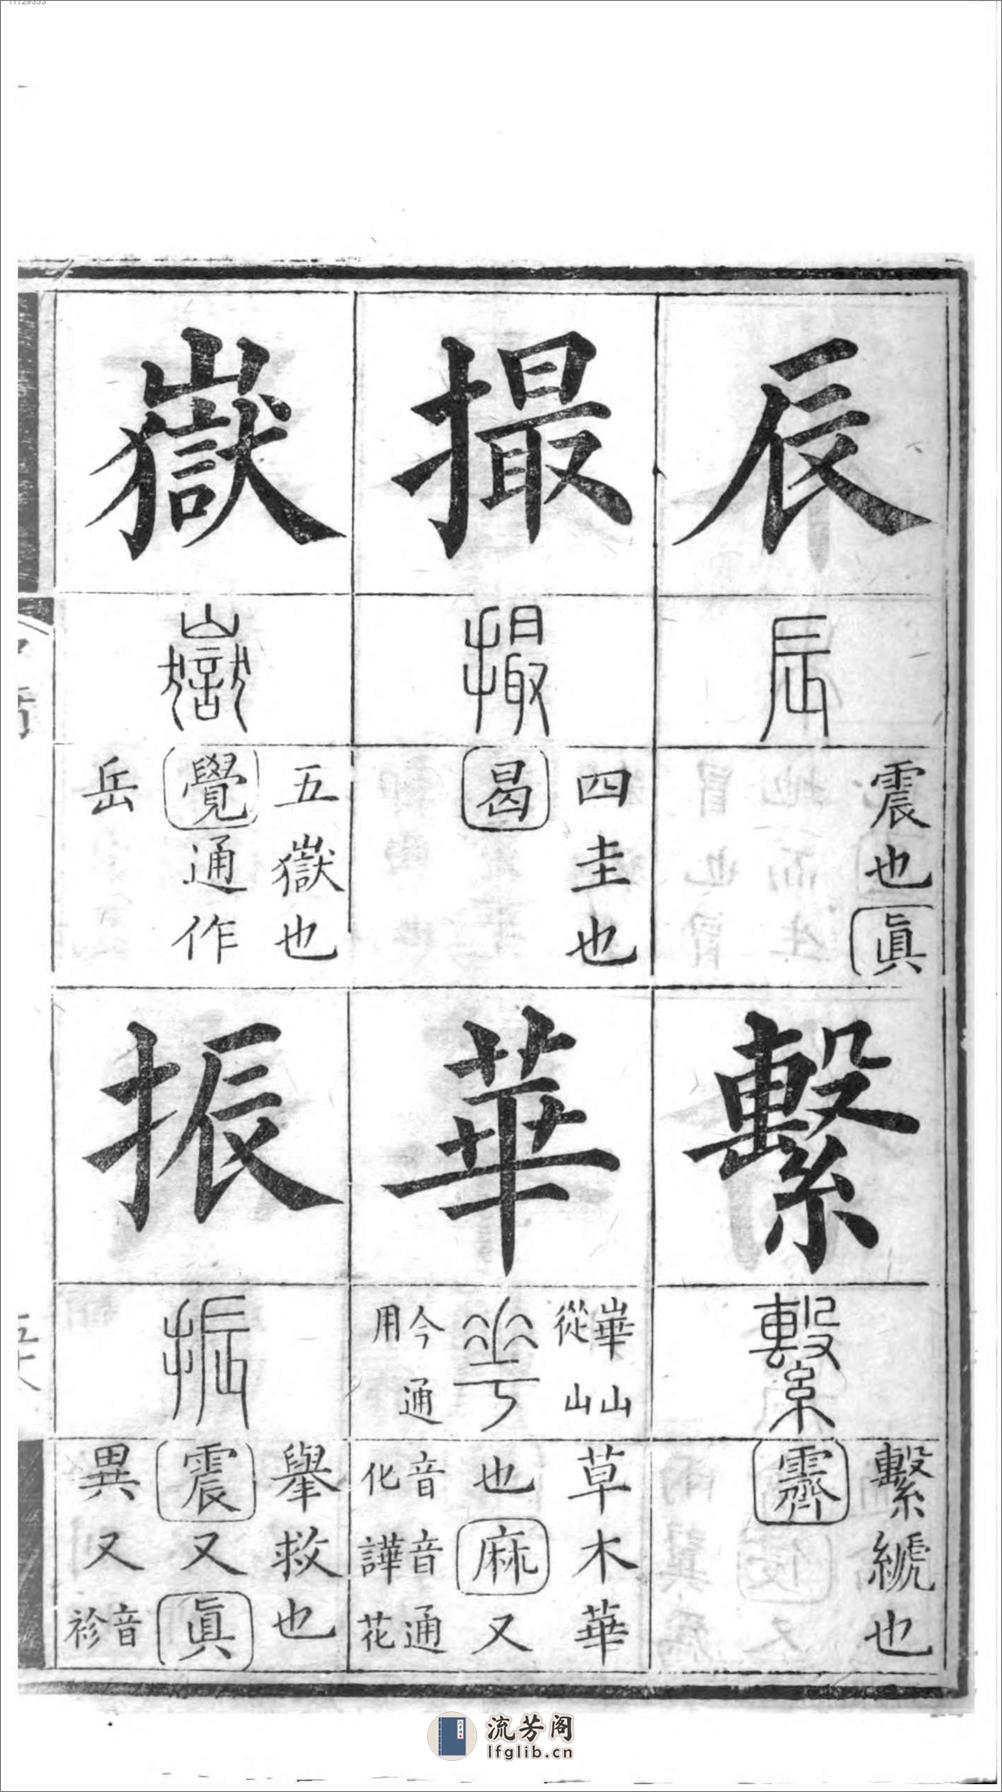 辰
辰
震也眞
繫
繫
繫繞也
霽
撮
撮
四圭也
曷
華
崋山
從山
華
今通
用
草木華
也麻又
音音通
化譁花
嶽
嶽
五嶽也
覺通作
岳
振
振
舉救也
震又眞
異又音袗
流芳阁
lfglib.cn